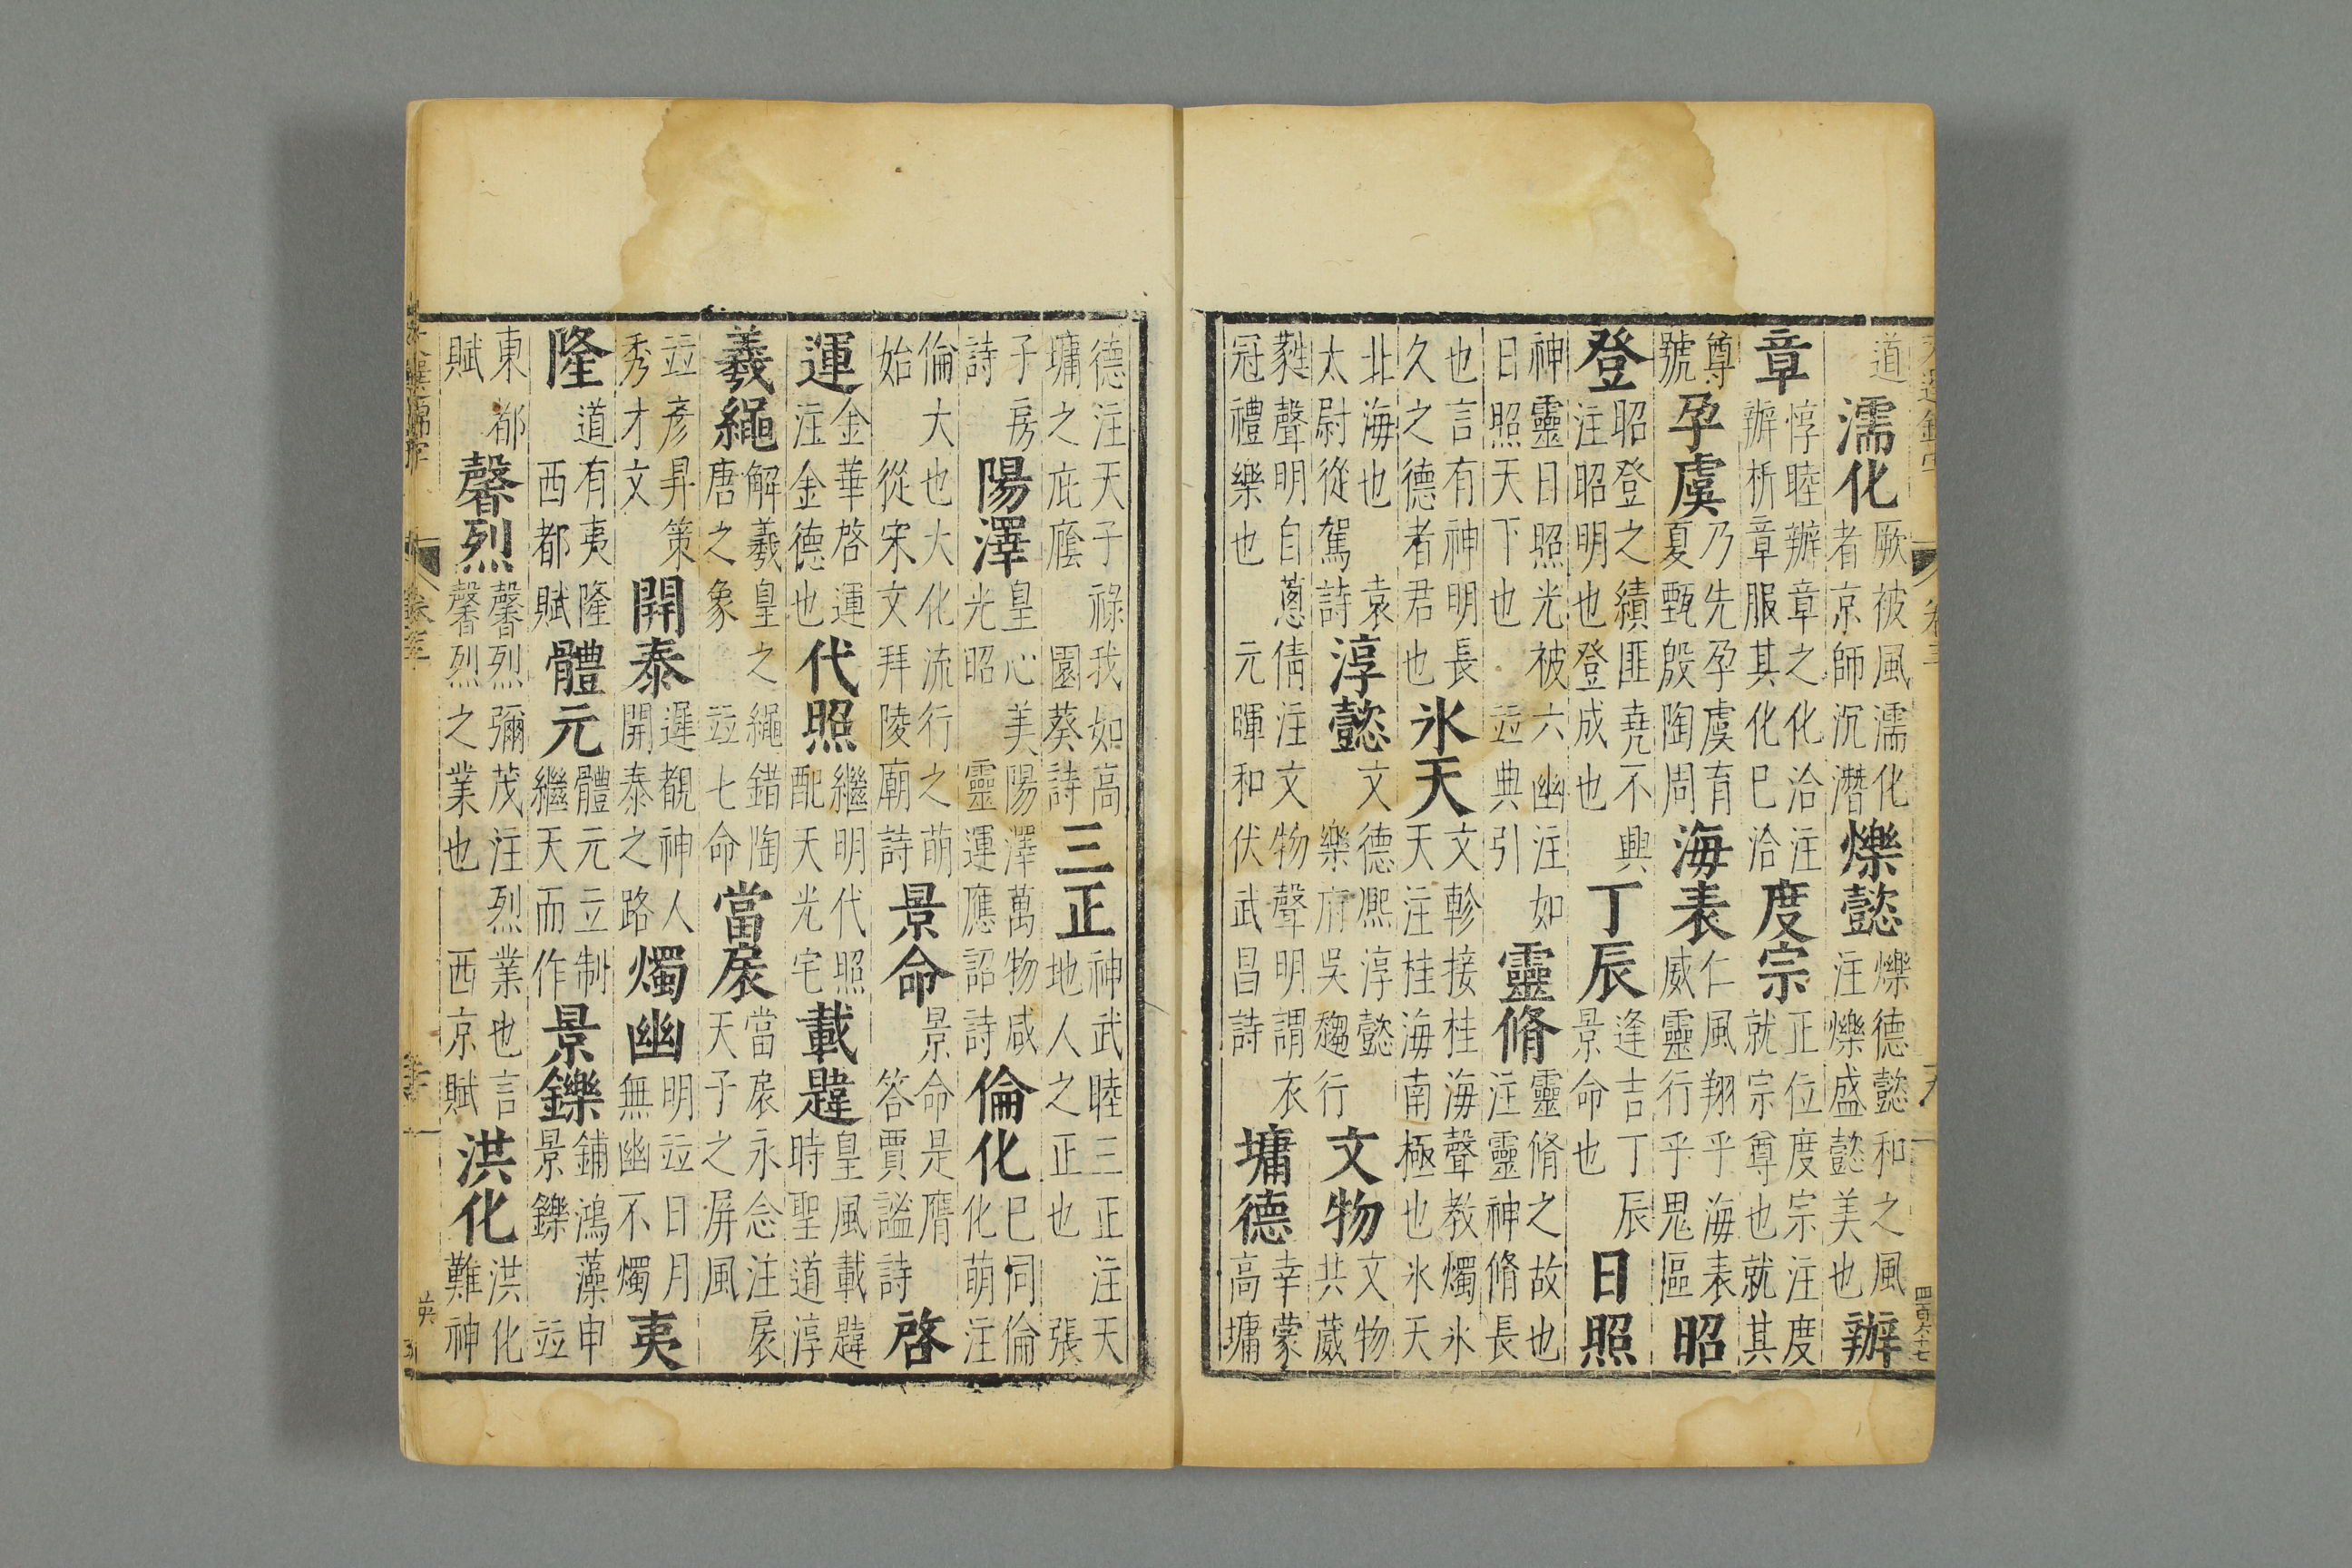 文選錦字 卷三 四百六十七
道濡化厥被風濡化者京師沉潛爍懿爍德懿和之風注爍盛懿美也辦
章惇睦辦章之化洽注辦析章服其化巳洽度宗正位度宗注度就宗尊也就其
尊號孕虞乃先孕虞育夏甄殷陶周海表仁風翔乎海表威靈行乎鬼區昭
登昭登之績匪堯不興注昭明也登成也丁辰逢吉丁辰景命也日照
神靈日照光被六幽注如日照天下也並典引靈脩靈脩之故也注靈神脩長
也言有神明長久之德者君也氷天文軫接桂海聲教燭氷天天注桂海南極也氷天
北海也袁太尉從駕詩淳懿文德熈淳懿樂府吳趨行文物文物共葳
蕤聲明自蔥倩注文物聲明謂衣冠禮樂也元暉和伏武昌詩墉德幸蒙高墉
德注天子祿我如高墉之庇廕園葵詩三正神武睦三正注天地人之正也張
子房詩陽澤皇心美陽澤萬物咸光昭靈運應詔詩倫化巳同倫化萌注
倫大也大化流行之萌始從宋文拜陵廟詩景命景命是膺答賈謐詩啓
運金華啓運注金德也代照繼明代照配天光宅載韙皇風載韙時聖道淳
羲繩解羲皇之繩錯陶唐之象並七命當扆當扆永念注扆天子之屏風
並彥昇策秀才文開泰遲覩神人開泰之路燭幽明並日月無幽不燭夷
隆道有夷隆西都賦體元體元立制繼天而作景鑠鋪鴻藻申景鑠並
東都賦馨烈馨烈彌茂注烈業也言馨烈之業也西京賦洪化洪化難神